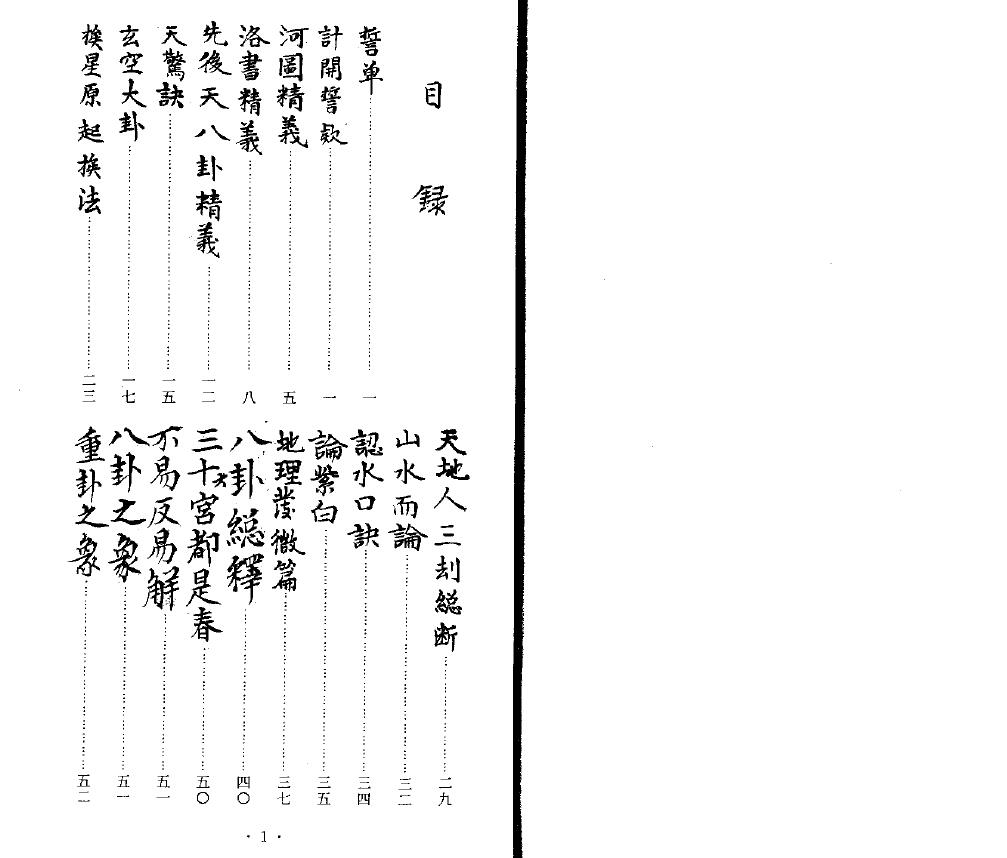 目録
誓单……一
計開誓款……一
河圖精義……五
洛書精義……八
先後天八卦精義……一二
天驚訣……一五
玄空大卦……一七
挨星原起挨法……二三
天地人三刦総断……二九
山水而論……三二
認水口訣……三四
論紫白……三五
地理發微篇……三七
八卦総釋……四〇
三十六宮都是春……五〇
不易反易解……五一
八卦之象……五一
重卦之象……五二
·1·